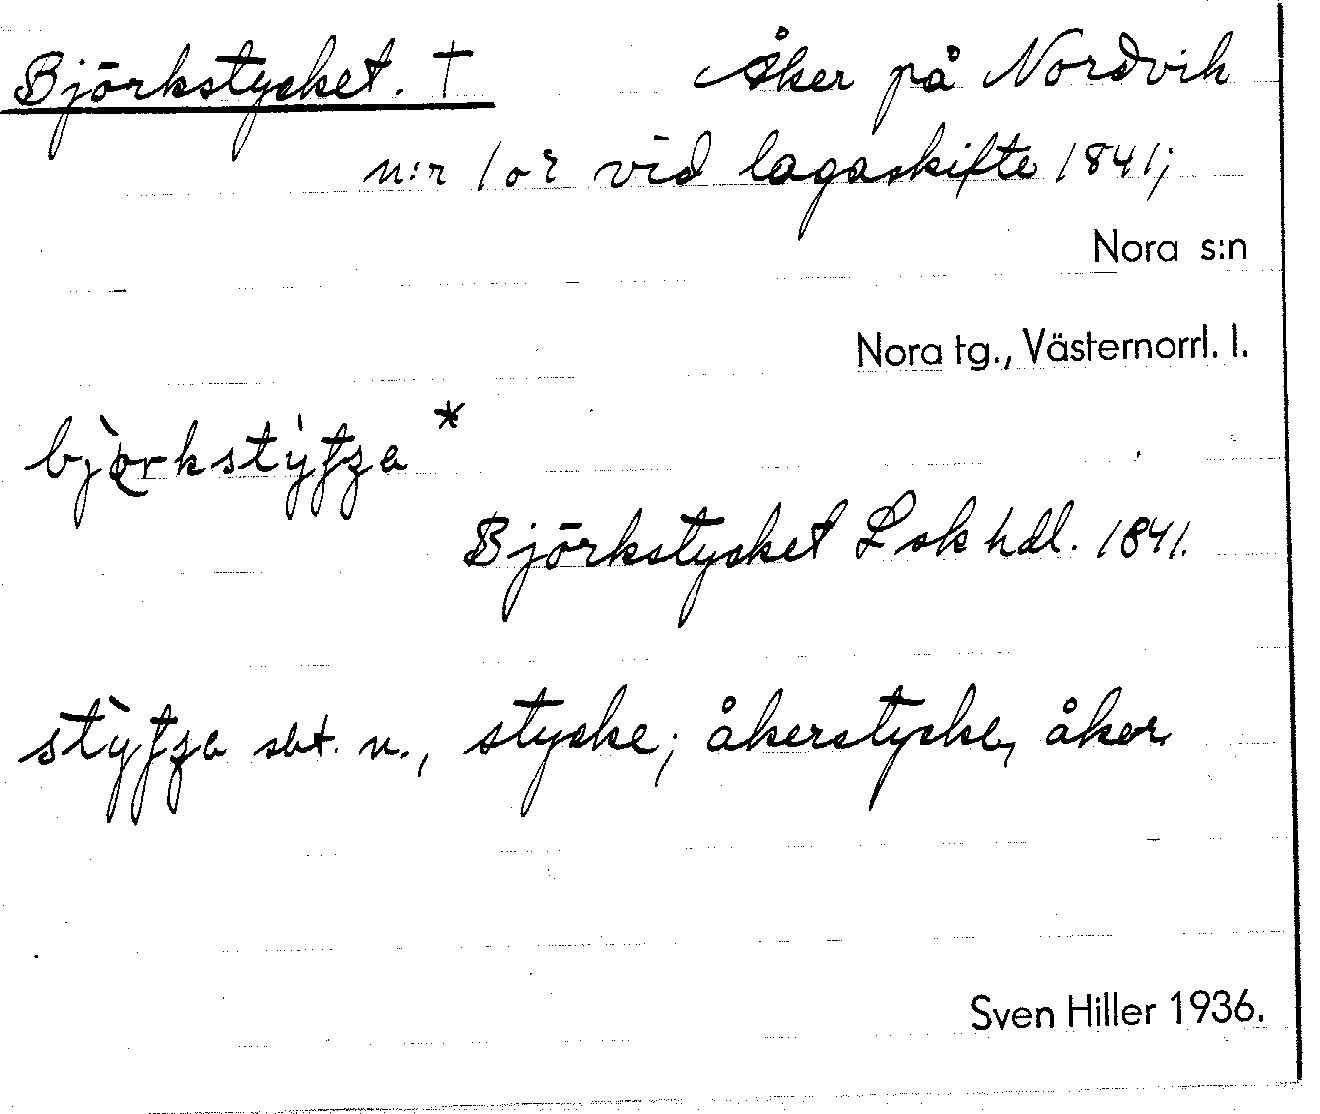 Björkstycket. † Åker på Nordvik
n:r 1 o 2 vid lagaskifte 1841;
Nora s:n
Nora tg., Västernorrl. l.
Björkstycket Lsk hdl. 1841.
sbt. n., stycke; åkerstycke, åker
Sven Hiller 1936.